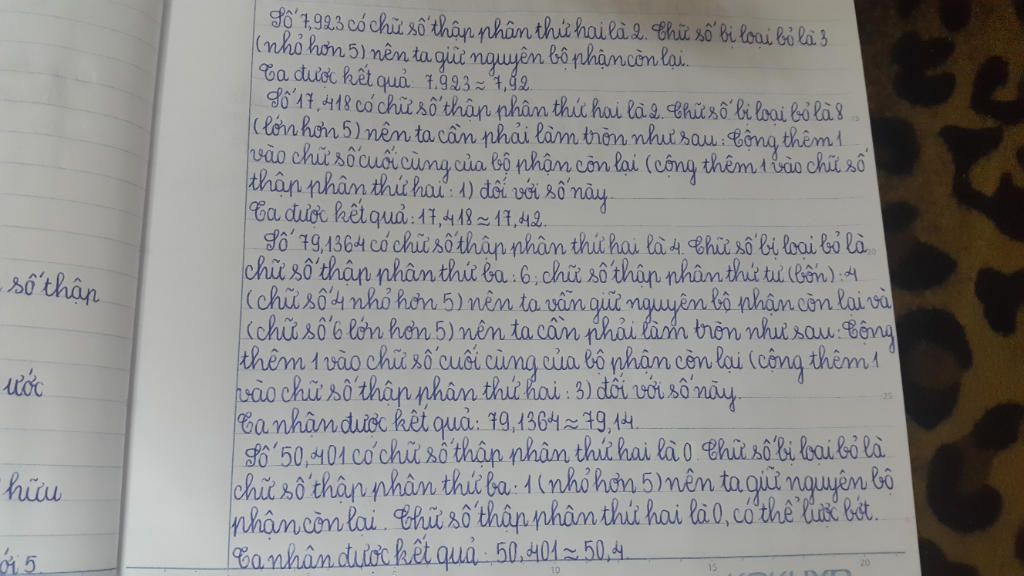 Số 7,923 có chữ số thập phân thứ hai là 2. Chữ số bị loại bỏ là 3
(nhỏ hơn 5) nên ta giữ nguyên bộ phận còn lại.
Ta được kết quả: 7,923 ≈ 7,92.
Số 17,418 có chữ số thập phân thứ hai là 2. Chữ số bị loại bỏ là 8
(lớn hơn 5) nên ta cần phải làm tròn như sau: Cộng thêm 1
vào chữ số cuối cùng của bộ phận còn lại (cộng thêm 1 vào chữ số
thập phân thứ hai: 1) đối với số này.
Ta được kết quả: 17,418 ≈ 17,42.
Số 79,1364 có chữ số thập phân thứ hai là 4. Chữ số bị loại bỏ là
chữ số thập phân thứ ba: 6; chữ số thập phân thứ tư (bốn): 4
(chữ số 4 nhỏ hơn 5) nên ta vẫn giữ nguyên bộ phận còn lại và
(chữ số 6 lớn hơn 5) nên ta cần phải làm tròn như sau: Cộng
thêm 1 vào chữ số cuối cùng của bộ phận còn lại (cộng thêm 1
vào chữ số thập phân thứ hai: 3) đối với số này.
Ta nhận được kết quả: 79,1364 ≈ 79,14.
Số 50,401 có chữ số thập phân thứ hai là 0. Chữ số bị loại bỏ là
chữ số thập phân thứ ba: 1 (nhỏ hơn 5) nên ta giữ nguyên bộ
phận còn lại. Chữ số thập phân thứ hai là 0, có thể lược bớt.
Ta nhận được kết quả: 50,401 ≈ 50,4.
số thập
ước
hữu
5.
20
25
10
15
20